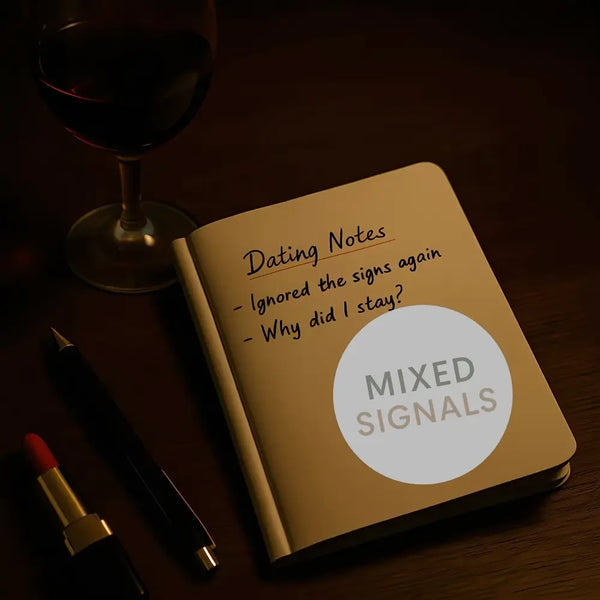 Dating Notes
- Ignored the signs again
- Why did I stay?
MIXED
SIGNALS